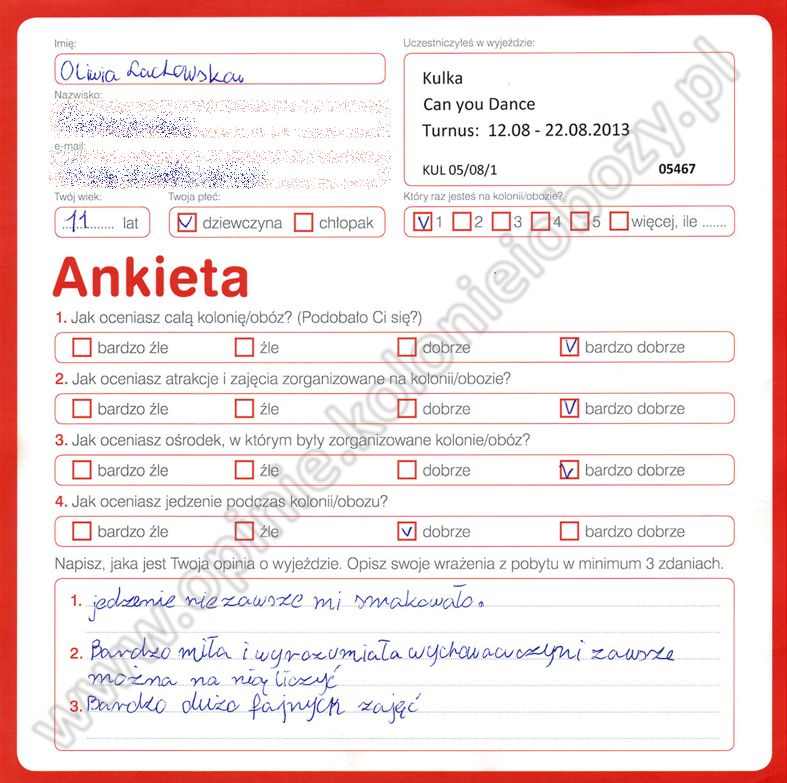 Imię:
Uczestniczyłeś w wyjeździe:
Oliwia Lachowska
Kulka
Can you Dance
Turnus: 12.08 - 22.08.2013
KUL 05/08/1 05467
Nazwisko:
e-mail:
Twój wiek: Twoja płeć: Który raz jesteś na kolonii/obozie?
11 lat dziewczyna chłopak 1 2 3 4 5 więcej, ile .......
Ankieta
1. Jak oceniasz całą kolonię/obóz? (Podobało Ci się?)
bardzo źle źle dobrze bardzo dobrze
2. Jak oceniasz atrakcje i zajęcia zorganizowane na kolonii/obozie?
bardzo źle źle dobrze bardzo dobrze
3. Jak oceniasz ośrodek, w którym były zorganizowane kolonie/obóz?
bardzo źle źle dobrze bardzo dobrze
4. Jak oceniasz jedzenie podczas kolonii/obozu?
bardzo źle źle dobrze bardzo dobrze
Napisz, jaka jest Twoja opinia o wyjeździe. Opisz swoje wrażenia z pobytu w minimum 3 zdaniach.
1. jedzenie niezawsze mi smakowało.
2. Bardzo miła i wyrozumiała wychowawczyni zawsze
można na nią liczyć
3. Bardzo dużo fajnych zajęć
www.opinie.kolonieiobozy.pl